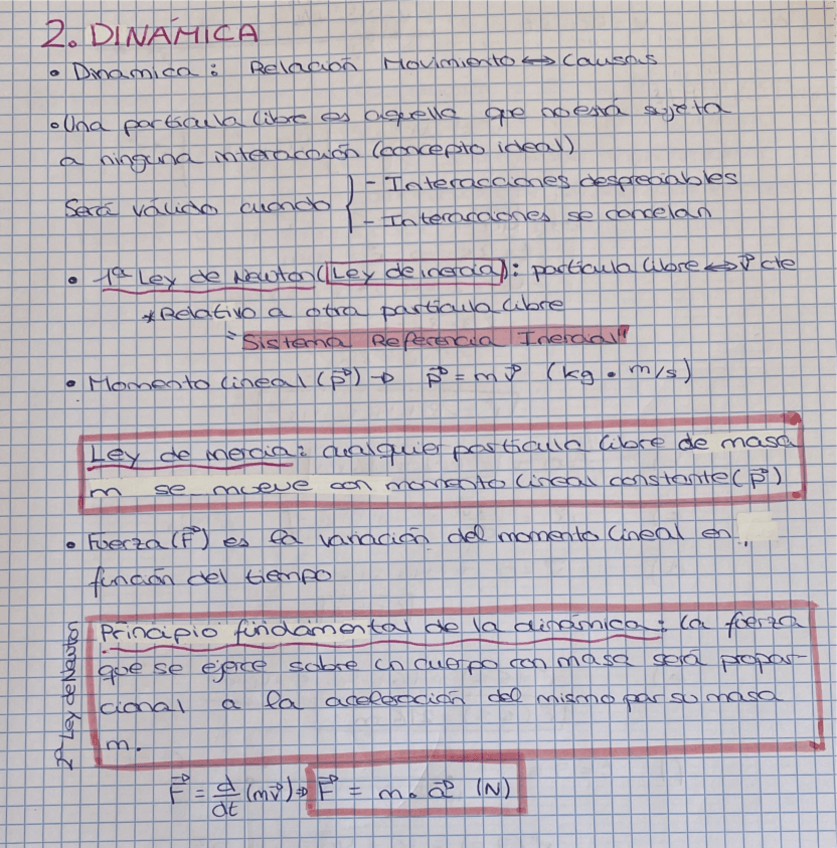 2. DINÁMICA
• Dinamica: Relación Movimiento ↔ causas
• Una particula libre es aquella que no está sujeta
a ninguna interacción (concepto ideal)
Será válido cuando { - Interacciones despreciables
- Interacciones se cancelan
• 1ª Ley de Newton (Ley de inercia): particula libre ↔ v⃗ cte
* Relativo a otra particula libre
"Sistema Referencia Inercial"
• Momento lineal (p⃗) → p⃗ = m v⃗ (kg • m/s)
Ley de inercia: cualquier particula libre de masa
m se mueve con momento lineal constante (p⃗)
• Fuerza (F⃗) es la variación del momento lineal en
función del tiempo
2ª Ley de Newton
Principio fundamental de la dinámica: la fuerza
que se ejerce sobre un cuerpo con masa será propor-
cional a la aceleración del mismo por su masa
m.
F⃗ = d/dt (m v⃗) → F⃗ = m • a⃗ (N)